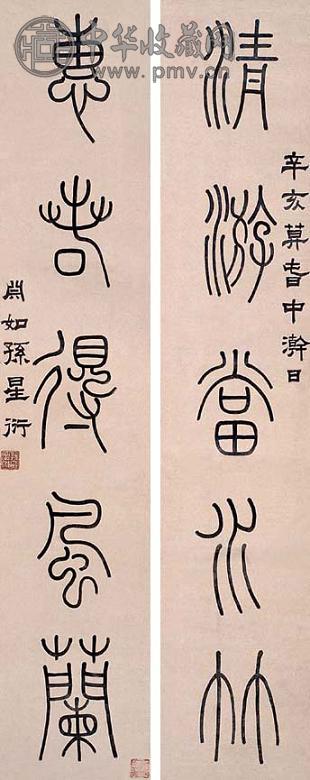 清游當水竹
辛亥莫旾中澣日
惠若得風蘭
淵如孫星衍
中华收藏网
www.pmv.cn